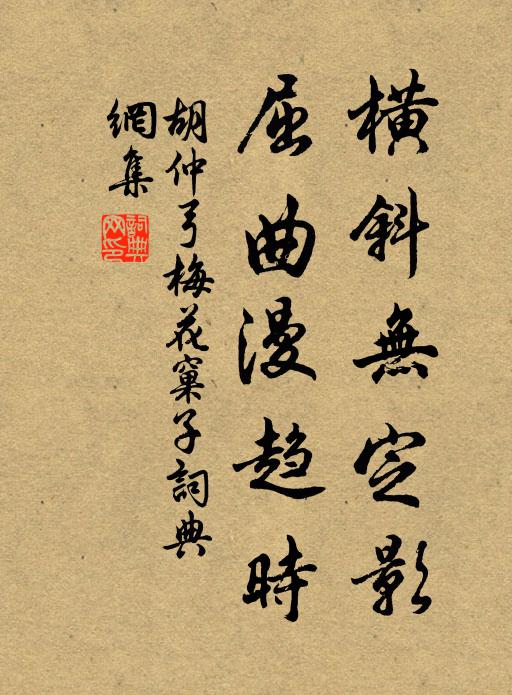 橫斜無定影
屈曲漫趨時
胡仲弓梅花窠子詞典
網集
詞典網印